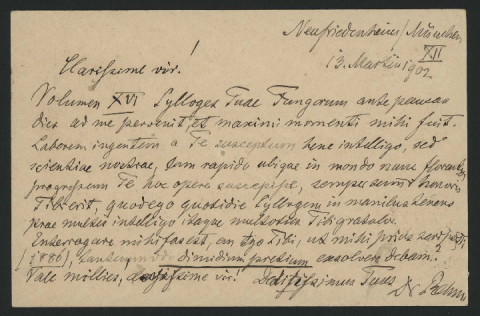 Neufriedenheim/München
XII
13. Martii 1902.
Clarissime vir!
Volumen XVI Sylloges Tuae Fungorum ante paucas
dies ad me pervenit, et maximi momenti mihi fuit.
Laborem ingentem a Te susceptum bene intelligo, sed
scientiae nostrae, tam rapide ubique in mondo nunc florentis
progressum Te hoc opere suscepisse, semper summi honoris
Tibi erit, quod ego quotidie Syllogem in manibus tenens
prae multis intelligo itaque multotum Tibi gratulor.
Interrogare mihi fas est, an ego Tibi, ut mihi prius scripsisti
(1886), tantummodo dimidium pretium exsolvere debam?
Vale millies, doctissime vir! Deditissimus Tuus
Dr Rehm